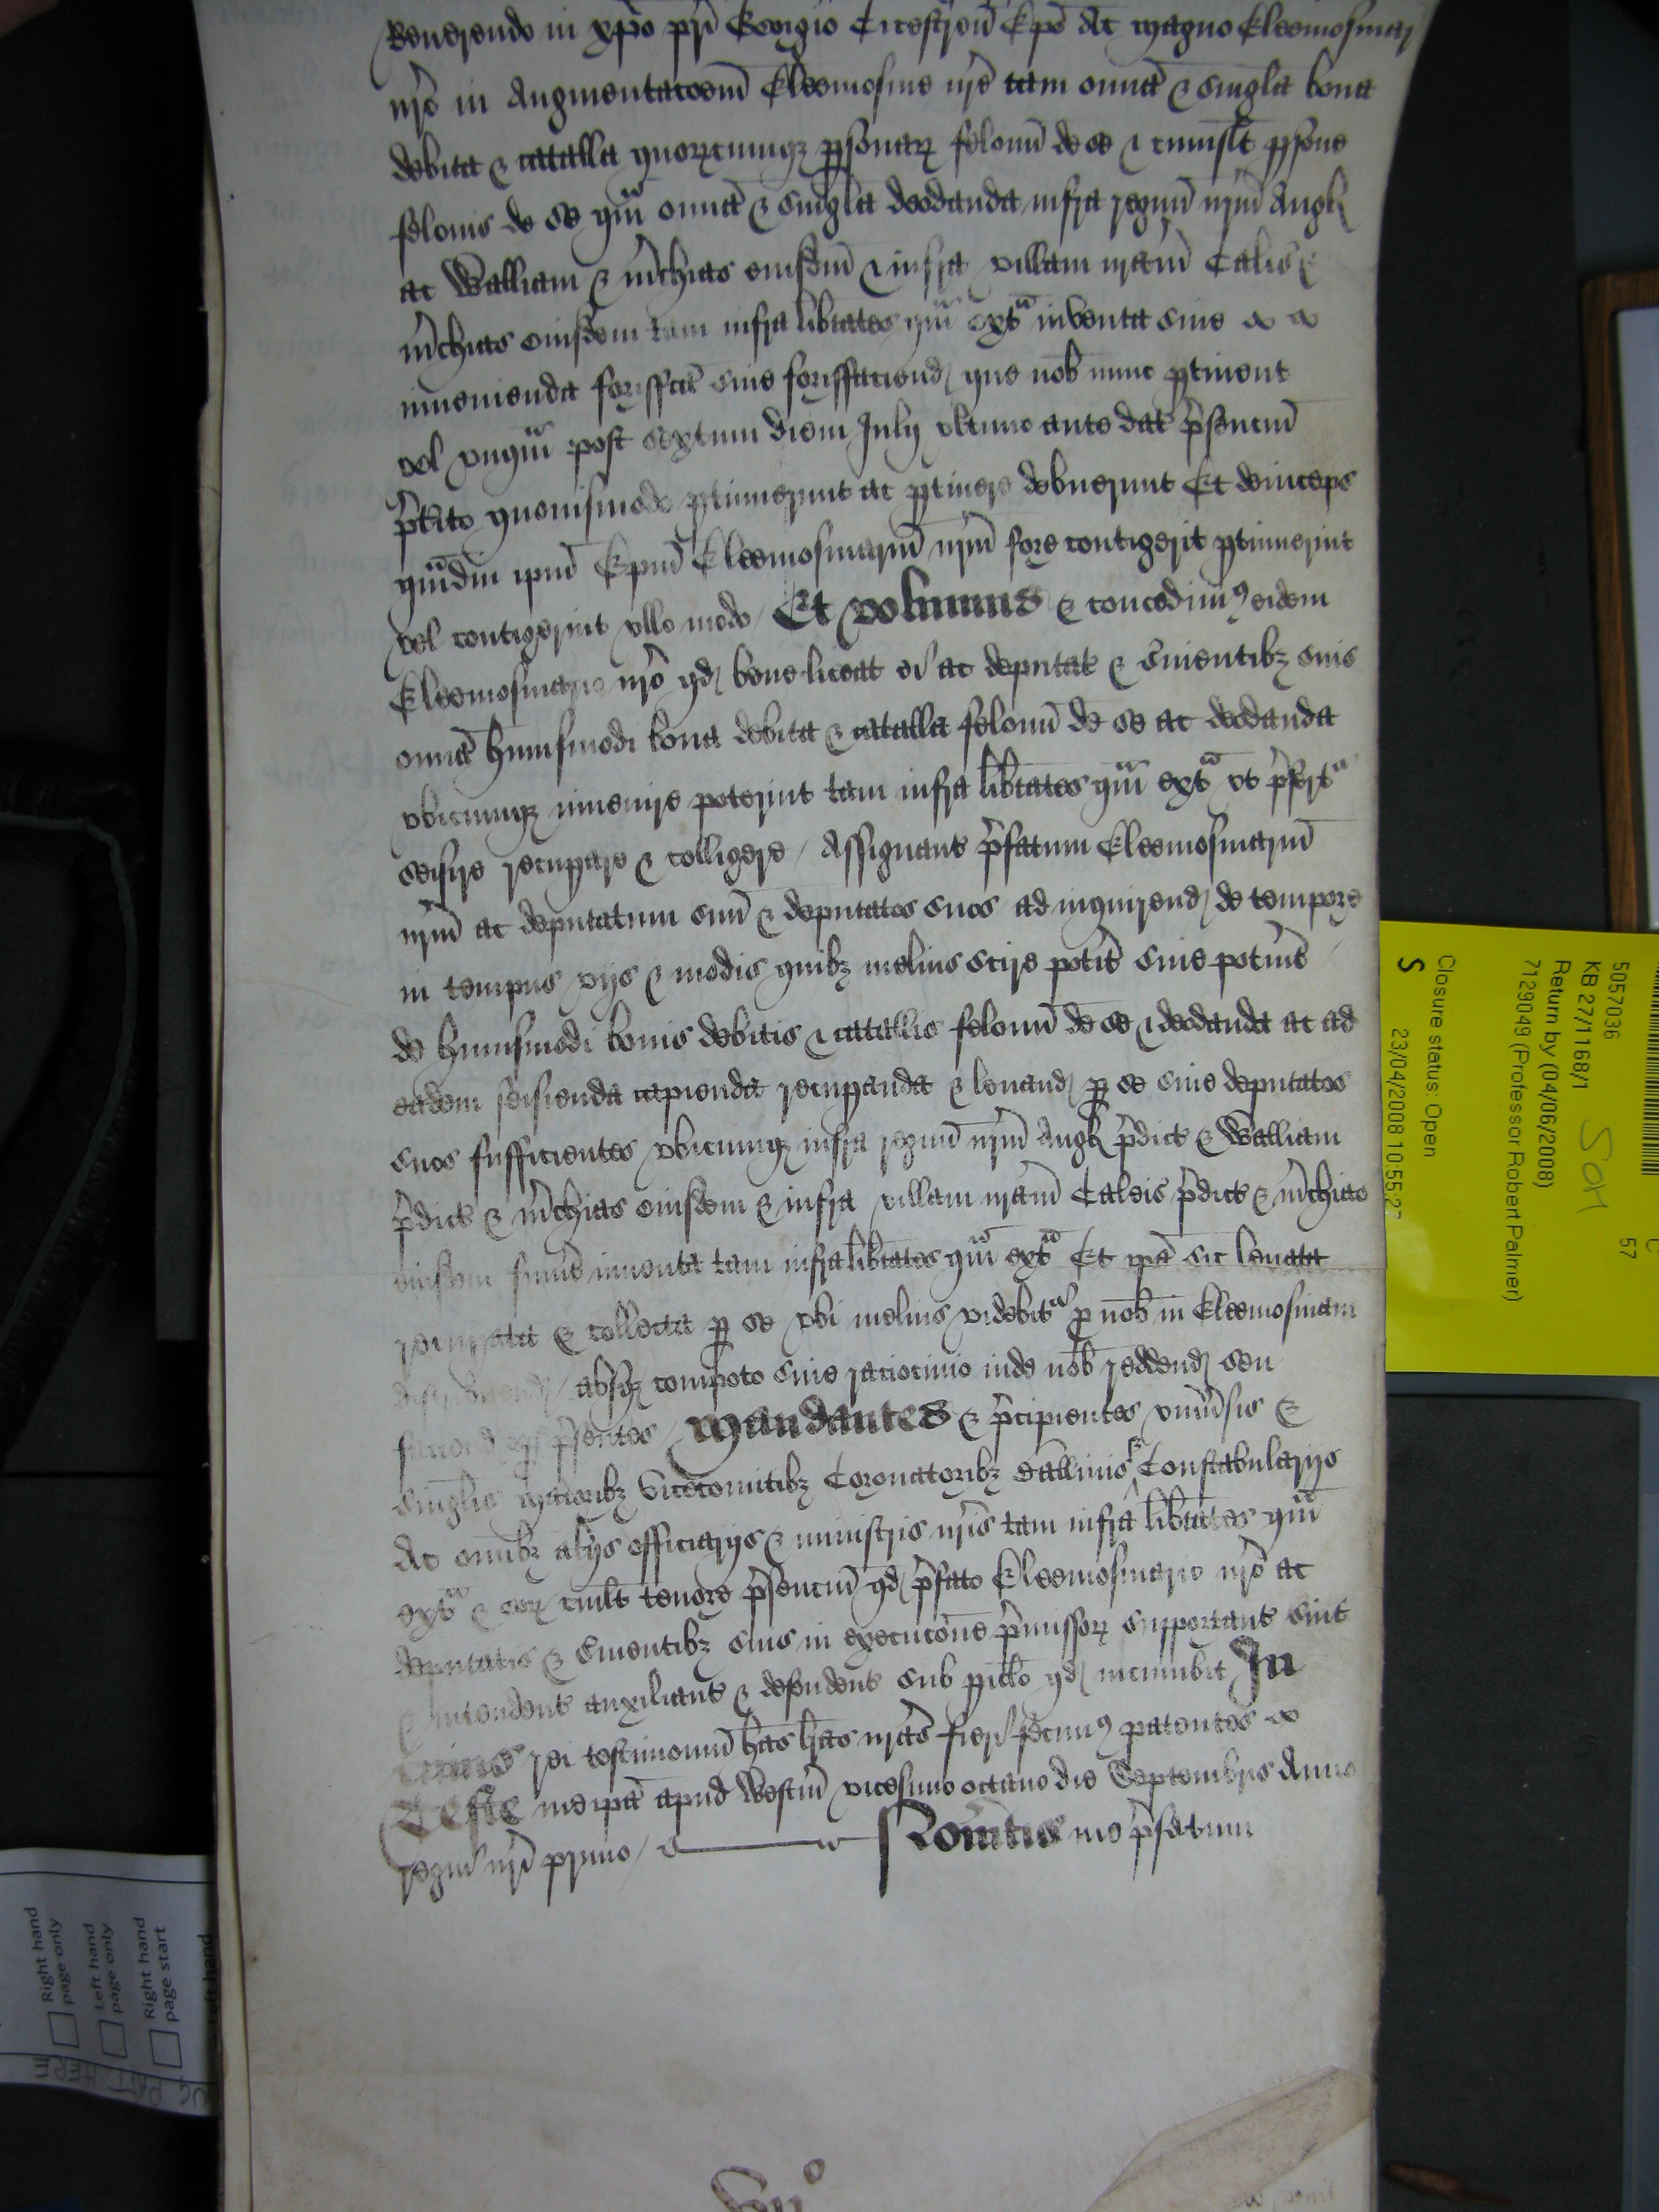 Reuerendo in xpo pri Georgio Cicestren Epo Ac magno Elemosinar
nro in Augmentacoem Elemosine nre tam omia & singla bona
debita & catalla quorcumq personar felonu de se & cuiuslt psone
felonis de se qm omia & singla deodanda infra regnu nrm Angl
ac Walliam & mchias eiusdm & infra villam nram Calis &
mchias eiusdem tam infra libtates qm extª inventa siue
inuenienda forisfca siue forisfaciend que nob nunc ptinent
vel vnqm post sextum diem July vltimo ante dat psencm
ptito quouismodo ptinuerunt ac ptinere debuerunt Et deinceps
qmdiu ipm Epm Elemosinarm nrm fore contigerit ptinuerint
vel contigerint vllo modo / Et volumus & concedimus eidem
Elemosinario nro qd bene liceat ei ac deputat & suientibz suis
omia huiusmodi bona debita & catalla felonu de se ac deodanda
vbicumq inuenire poterint tam infra libtates qm extª vt pfertʳ
seisire recupare & colligere / Assignant pfatum Elemosinarm
nrm ac deputatum suu & deputatos suos ad inquirend de tempore
in tempus vijs & modis quibz melius scire potit siue potint
de huiusmodi bonis debitis & catallis felonu de se & deodanda ac ad
eadem seisienda capienda recupanda & leuand p se siue deputatos
suos sufficientes vbicumq infra regnu nrm Angl pdict & Walliam
pdict & mchias eiusdem & infra villam nram Caleis pdict & mchias
eiusdem fuint inuenta tam infra libtates qm extª Et ipa sic leuata
recupata & collecta p se vbi melius videbitʳ p nob in Elemosinam
absq compoto siue raciocinio inde nob reddend seu
faciend p psentes / Mandantes & pcipientes vniusis &
singlis maioribz vicecomitibz Coronatoribz Balliuis Constabularijs
Ac omibz alijs officiarijs & ministris nris tam infra libtates qm
extª & eor cuilt tenore psencm qd pfato Elemosinario nro ac
deputatis & suientibz suis in execucone pmissor supportant sint
& intendent auxiliant & defendent sub piclo qd incumbit In
cuius rei testimonm has lras nras fieri fecimus patentes
Teste me ipa apud Westm vicesimo octauo die Septembris Anno
regni nri primo / Ronitus me pfatum
5057036
KB 27/1168/1
Return by (04/06/2008)
7129049 (Professor Robert Palmer)
Closure status: Open
S
23/04/2008 10:55:27
57
Right hand
page only
Left hand
page only
Right hand
page start